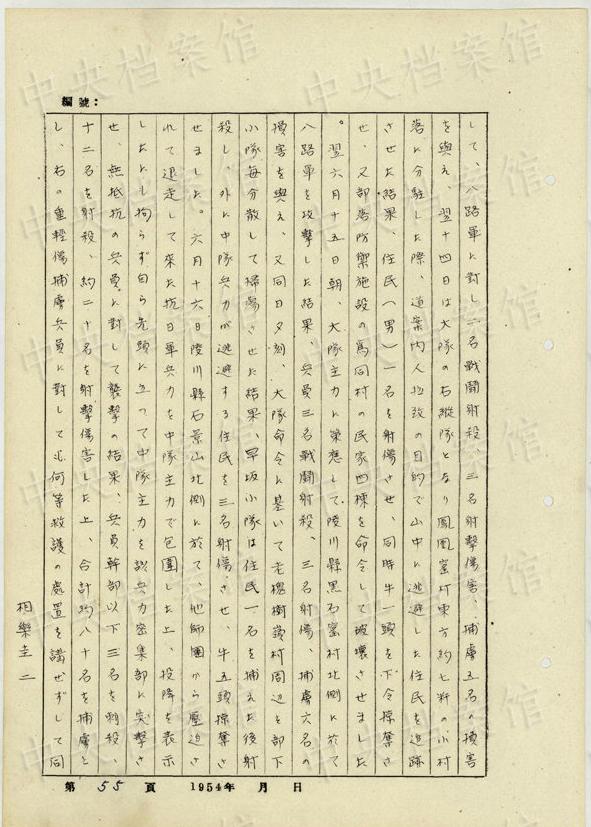 編號：
して、八路軍に対し二名戦闘射殺、三名射撃傷害、捕虜五名の損害
を與え、翌十四日は大隊の右縦隊となり鳳凰窰村東方約七粁の小村
落に分駐した際、道案内人拉致の目的で山中に逃避した住民を追跡
させた結果、住民(男)一名を射傷させ、同時牛一頭を下令掠奪さ
せ、又部落防禦施設の為同村の民家四棟を命令して破壊させました
。翌六月十五日朝、大隊主力に策應して陵川縣黒石窰村北側に於て
八路軍を攻撃した結果、兵員三名戦闘射殺、三名射傷、捕虜六名の
損害を與え、又同日夕刻、大隊命令に基いて老槐樹嶺村周辺を部下
小隊毎分散して掃蕩させた結果、早坂小隊は住民一名を捕えた後射
殺し、外に中隊兵力が逃避する住民を三名射傷させ、牛五頭掠奪さ
せました。六月十六日陵川縣石景山北側に於て、他師團から壓迫さ
れて退走して来た抗日軍兵力を中隊主力で包囲した上、投降を表示
したにも拘らず自ら先頭に立って中隊主力を該兵力密集部に突撃さ
せ、無抵抗の兵員に対して襲撃の結果、兵員幹部以下三名を刺殺、
十二名を射殺、約二十名を射撃傷害した上、合計約八十名を捕虜と
し、右の重軽傷捕虜兵員に対しても何等救護の處置を講ぜずして同
相樂圭二
第 55 頁 1954年 月 日
中央档案馆